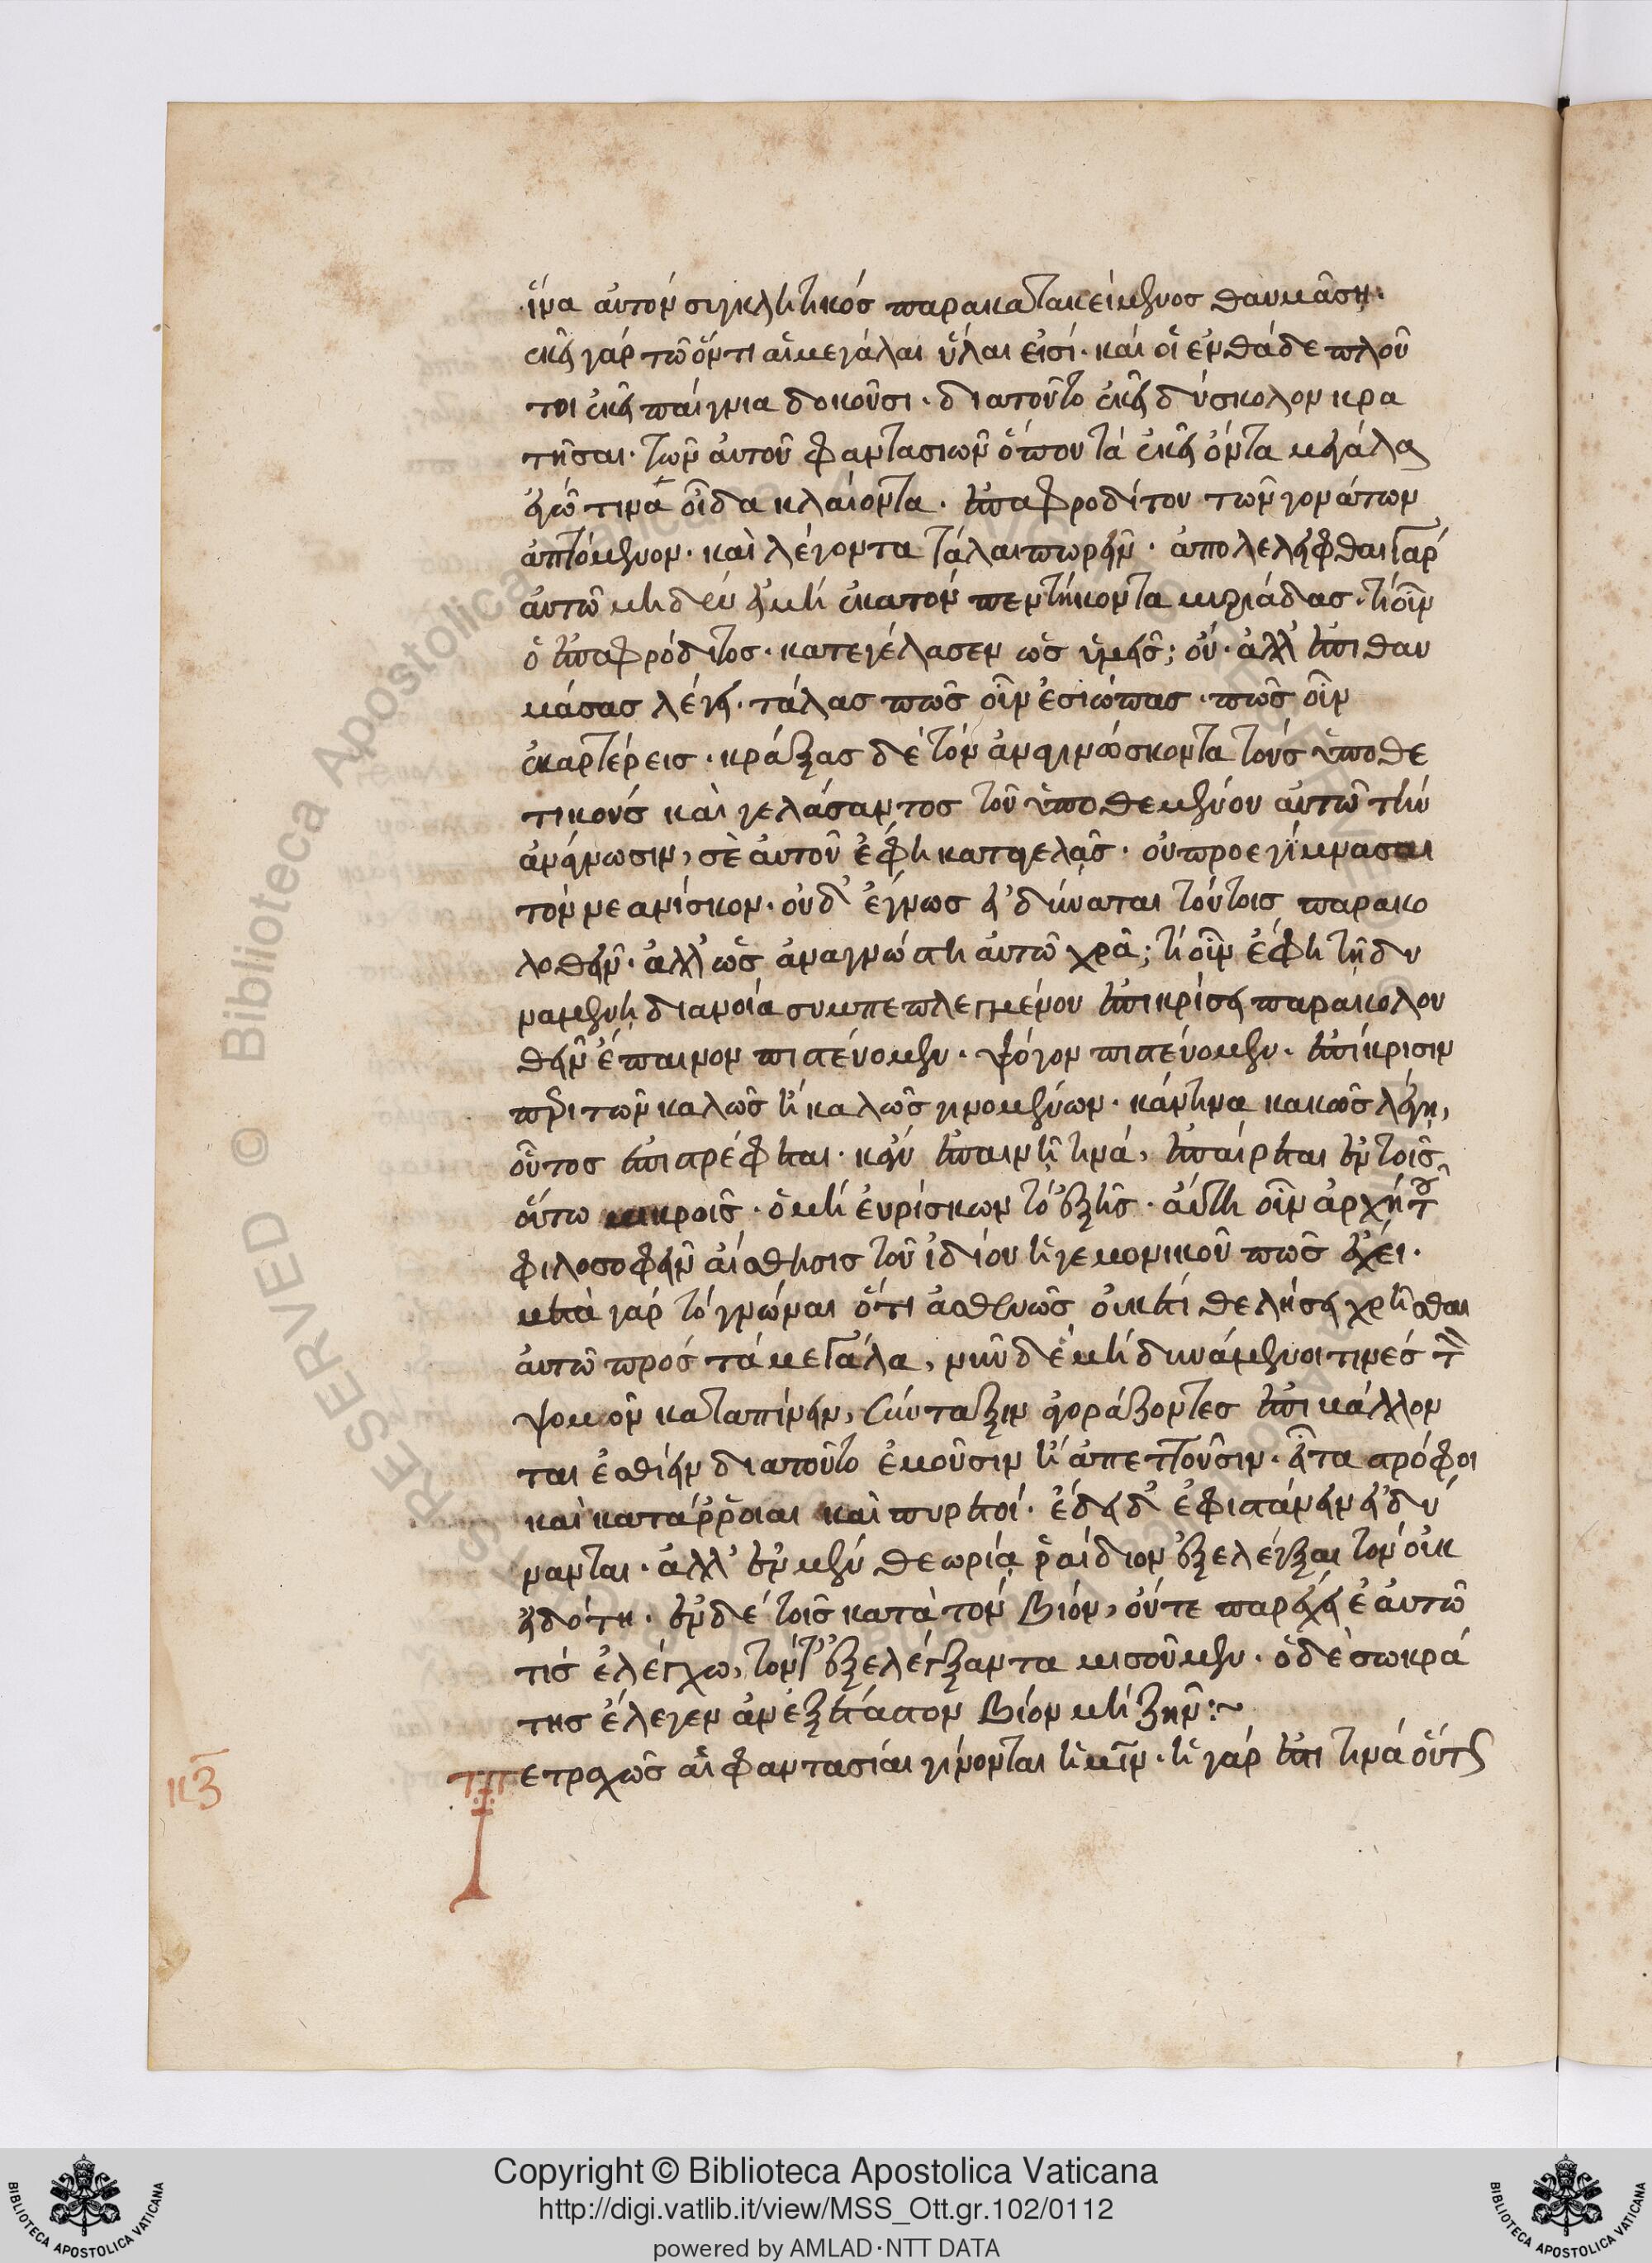 ἵνα αὐτὸν συγκλητικός παρακατακείμενος θαυμάσῃ·
ἐκεῖ γάρ τῷ ὄντι αἱ μεγάλαι ὗλαι εἰσί· καί οἱ ἐνθάδε πλοῦ
τοι ἐκεῖ παίγνια δοκοῦσι· διατοῦτο ἐκεῖ δύσκολον κρα
τῆσαι· τῶν αὐτοῦ φαντασιῶν ὅπου τά ἐκεῖ ὄντα μεγάλα
ἐγώ τινά οἶδα κλαίοντα· ἐπαφροδίτου τῶν γονάτων
ἁπτόμενον· καὶ λέγοντα ταλαιπωρεῖν· ἀπολελεῖφθαι γάρ
αὐτῷ μηδέν εἰ μή ἑκατόν πεντήκοντα μυριάδας· τί οὖν
ὁ ἐπαφρόδιτος· κατεγέλασεν ὡς ὑμεῖς; οὔ· ἀλλ' ἐπιθαυ
μάσας λέγει· τάλας πῶς οὖν ἐσιώπας· πῶς οὖν
ἐκαρτέρεις· κράξας δέ τόν ἀναγινώσκοντα τούς ὑποθε
τικούς καὶ γελάσαντος τοῦ ὑποθεμένου αὐτῷ τήν
ἀνάγνωσιν, σὲ αὐτοῦ ἔφη καταγελᾷς· οὐ προεγύμνασαι
τόν νεανίσκον· οὐδ' ἔγνως εἰ δύναται τούτοις παρακο
λοθεῖν· ἀλλ' ὡς ἀναγνώστῃ αὐτῷ χρᾷ; τί οὖν ἔφη τῇ δυ
ναμένῃ διανοίᾳ συμπεπλεγμένου ἐπικρίσει παρακολου
θεῖν ἔπαινον πιστεύομεν· ψόγον πιστεύομεν· ἐπίκρισιν
περὶ τῶν καλῶς ἤ καλῶς γινομένων· κάν τινα κακῶς λέγῃ,
οὗτος ἐπιστρέφεται· κἄν ἐπαινῇ τινά, ἐπαίρεται ἐν τοῖς
οὕτω μικροῖς· ὁ μή εὑρίσκων τό ἑξῆς· αὕτη οὖν ἀρχή τοῦ
φιλοσοφεῖν αἴσθησις τοῦ ἰδίου ἡγεμονικοῦ πῶς ἔχει·
μετά γάρ τό γνῶναι ὅτι ἀσθενῶς οὐκέτι θελήσει χρῆσθαι
αὐτῷ πρός τά μεγάλα, νῦν δέ μή δυνάμενοι τινές τόν
ψομόν καταπίνειν, σύνταξιν ἀγοράζοντες ἐπιμάλλον
ται ἐσθίειν διατοῦτο ἐμοῦσιν ἤ ἀπεπτοῦσιν· εἶτα στρόφοι
καί κατάρροιαι καί πυρετοί· ἔδει δ' ἐφιστάνειν εἰ δύ
νανται· ἀλλ' ἐν μέν θεωρίᾳ ῥᾴδιον ἐξελέγξαι τόν οὐκ
εἰδότα· ἐν δέ τοῖς κατὰ τόν βίον, οὔτε παρέχει ἑαυτῷ
τίς ἐλέγχω, τόν τ' ἐξελέγξαντα μισοῦμεν· ὁ δὲ σωκρά
της ἔλεγεν ἀνεξέταστον βίον μή ζῆν:~
Τετραχῶς αἱ φαντασίαι γίνονται ἡμῖν· ἤ γάρ ἔστι τινά οὕτως
κζ
Copyright © Biblioteca Apostolica Vaticana
http://digi.vatlib.it/view/MSS_Ott.gr.102/0112
powered by AMLAD·NTT DATA